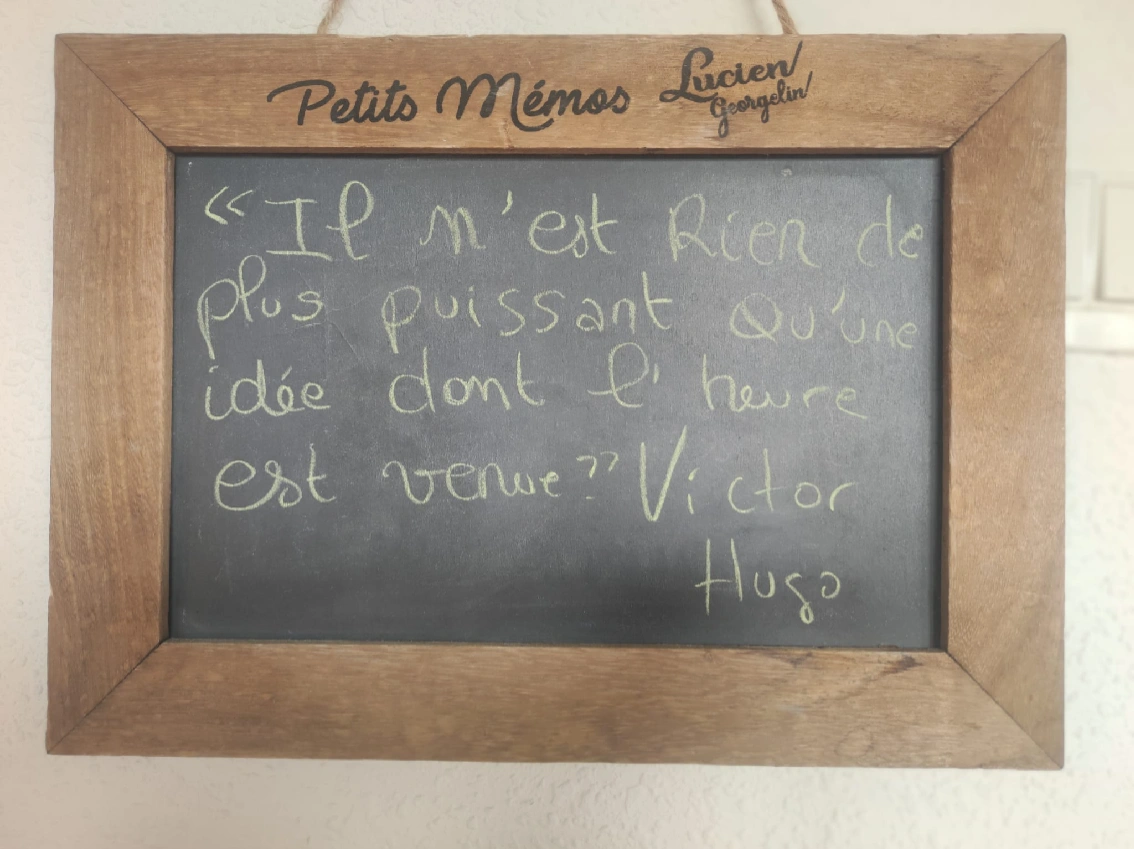 Petits Mémos Lucien Georgelin
« Il n'est Rien de
plus puissant Qu'une
idée dont l'heure
est venue ?? Victor
Hugo